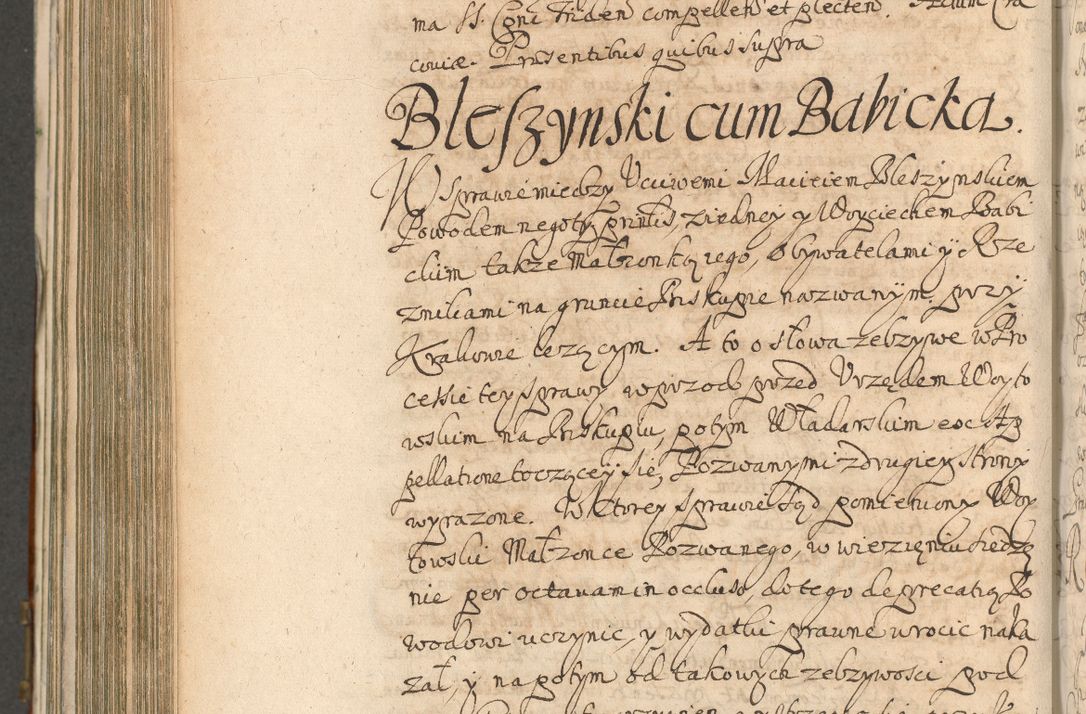 ma SS. Cgni Triden compellen et plecten. Actum Cra
coviæ. Præsentibus quibus supra
Bleszynski cum Babicka.
W Sprawie miedzy Ucciwemi Maciciem Bleszynskiem
Powodem negoty prntis, ziedney, y Woyciechem Babi
ckim także Małżonką iego, Obywatelami y Rze
znikami na gruncie Biskupie nazwanym, przy
Krakowie lezącym. A to o słowa zelzywe w Pro
cessie tey sprawy wprzod przed Urzędem Woyto
wskim na Biskupiu, potym Władarskim eoc Ap
pellatione toczącey sie, Pozwanymi z drugiey strony
wyrazone. W ktorey sprawie sąd pomieniony Woy
towski Małzonce Pozwanego, w wiezieniu siedze
nie per octavam in occluso, do tego deprecatią Po
wodowi uczynic, y wydatki prawne wrocic naka
zał, y na potym od takowych zelzywosci pod